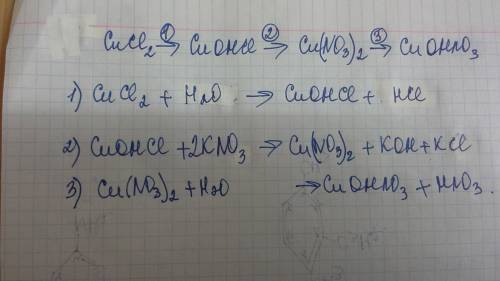 CuCl₂ ①→ CuOHCl ②→ Cu(NO₃)₂ ③→ CuOHNO₃
1) CuCl₂ + H₂O → CuOHCl + HCl
2) CuOHCl + 2KNO₃ → Cu(NO₃)₂ + KOH + KCl
3) Cu(NO₃)₂ + H₂O → CuOHNO₃ + HNO₃.